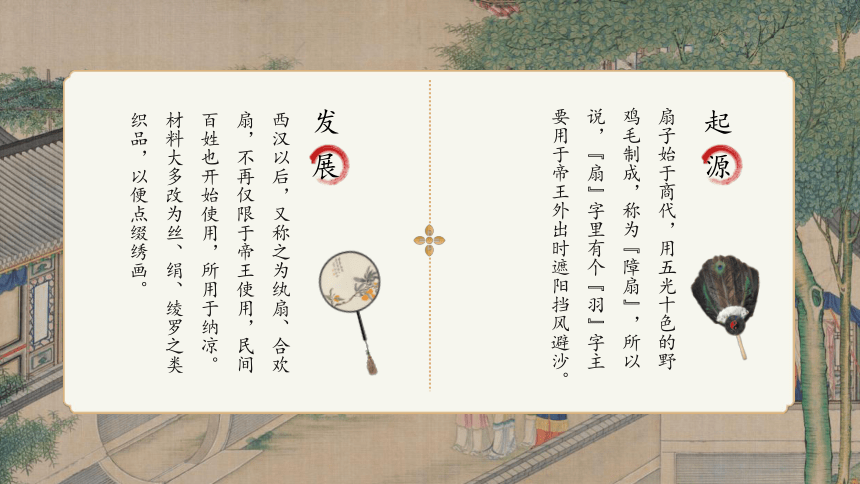 起源
扇子始于商代，用五光十色的野
鸡毛制成，称为『障扇』，所以
说，『扇』字里有个『羽』字主
要用于帝王外出时遮阳挡风避沙。
发展
西汉以后，又称之为纨扇、合欢
扇，不再仅限于帝王使用，民间
百姓也开始使用，所用于纳凉。
材料大多改为丝、绢、绫罗之类
织品，以便点缀绣画。